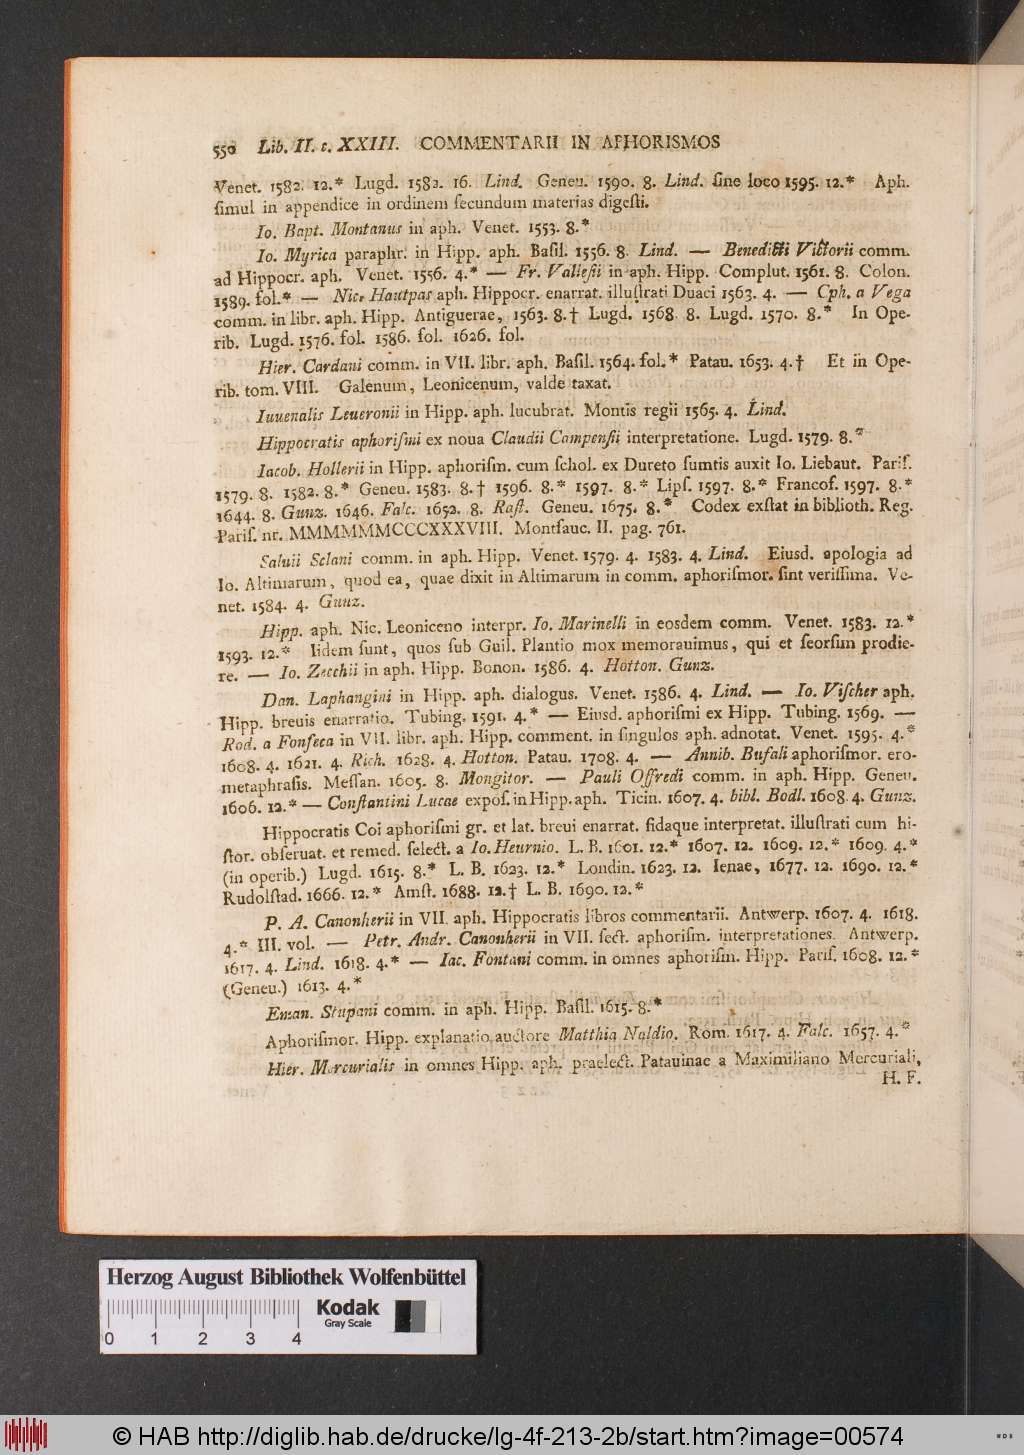 550 Lib. II. c. XXIII. COMMENTARII IN APHORISMOS
Venet. 1582. 12.* Lugd. 1582. 16. Lind. Geneu. 1590. 8. Lind. ſine loco 1595. 12.* Aph.
ſimul in appendice in ordinem ſecundum materias digeſti.
Io. Bapt. Montanus in aph. Venet. 1553. 8.*
Io. Myrica paraphr. in Hipp. aph. Baſil. 1556. 8. Lind. — Benedicti Victorii comm.
ad Hippocr. aph. Venet. 1556. 4.* — Fr. Valleſii in aph. Hipp. Complut. 1561. 8. Colon.
1589. fol.* — Nic. Hautpas aph. Hippocr. enarrat. illuſtrati Duaci 1563. 4. — Cph. a Vega
comm. in libr. aph. Hipp. Antiguerae, 1563. 8.† Lugd. 1568. 8. Lugd. 1570. 8.* In Ope-
rib. Lugd. 1576. fol. 1586. fol. 1626. fol.
Hier. Cardani comm. in VII. libr. aph. Baſil. 1564. fol.* Patau. 1653. 4.† Et in Ope-
rib. tom. VIII. Galenum, Leonicenum, valde taxat.
Iuuenalis Leueronii in Hipp. aph. lucubrat. Montis regii 1565. 4. Lind.
Hippocratis aphoriſmi ex noua Claudii Campenſii interpretatione. Lugd. 1579. 8.*
Iacob. Hollerii in Hipp. aphoriſm. cum ſchol. ex Dureto ſumtis auxit Io. Liebaut. Pariſ.
1579. 8. 1582. 8.* Geneu. 1583. 8.† 1596. 8.* 1597. 8.* Lipſ. 1597. 8.* Francof. 1597. 8.*
1644. 8. Gunz. 1646. Falc. 1652. 8. Raſt. Geneu. 1675. 8.* Codex exſtat in biblioth. Reg.
Pariſ. nr. MMMMMMCCCXXXVIII. Montfauc. II. pag. 761.
Saluii Sclani comm. in aph. Hipp. Venet. 1579. 4. 1583. 4. Lind. Eiusd. apologia ad
Io. Altimarum, quod ea, quae dixit in Altimarum in comm. aphoriſmor. ſint veriſſima. Ve-
net. 1584. 4. Gunz.
Hipp. aph. Nic. Leoniceno interpr. Io. Marinelli in eosdem comm. Venet. 1583. 12.*
1593. 12.* Iidem ſunt, quos ſub Guil. Plantio mox memorauimus, qui et ſeorſim prodie-
re. — Io. Zecchii in aph. Hipp. Bonon. 1586. 4. Hotton. Gunz.
Dan. Laphangini in Hipp. aph. dialogus. Venet. 1586. 4. Lind. — Io. Viſcher aph.
Hipp. breuis enarratio. Tubing. 1591. 4.* — Eiusd. aphoriſmi ex Hipp. Tubing. 1569. —
Rod. a Fonſeca in VII. libr. aph. Hipp. comment. in ſingulos aph. adnotat. Venet. 1595. 4.*
1608. 4. 1621. 4. Rich. 1628. 4. Hotton. Patau. 1708. 4. — Annib. Bufali aphoriſmor. ero-
metaphraſis. Meſſan. 1605. 8. Mongitor. — Pauli Offredi comm. in aph. Hipp. Geneu.
1606. 12.* — Conſtantini Lucae expoſ. in Hipp. aph. Ticin. 1607. 4. bibl. Bodl. 1608. 4. Gunz.
Hippocratis Coi aphoriſmi gr. et lat. breui enarrat. fidaque interpretat. illuſtrati cum hi-
ſtor. obſeruat. et remed. ſelect. a Io. Heurnio. L. B. 1601. 12.* 1607. 12. 1609. 12.* 1609. 4.*
(in operib.) Lugd. 1615. 8.* L. B. 1623. 12.* Londin. 1623. 12. Ienae, 1677. 12. 1690. 12.*
Rudolſtad. 1666. 12.* Amſt. 1688. 12.† L. B. 1690. 12.*
P. A. Canonherii in VII. aph. Hippocratis libros commentarii. Antwerp. 1607. 4. 1618.
4.* III. vol. — Petr. Andr. Canonherii in VII. ſect. aphoriſm. interpretationes. Antwerp.
1617. 4. Lind. 1618. 4.* — Iac. Fontani comm. in omnes aphoriſm. Hipp. Pariſ. 1608. 12.*
(Geneu.) 1613. 4.*
Eman. Stupani comm. in aph. Hipp. Baſil. 1615. 8.*
Aphoriſmor. Hipp. explanatio auctore Matthia Naldio. Rom. 1617. 4. Falc. 1657. 4.*
Hier. Mercurialis in omnes Hipp. aph. praelect. Patauinae a Maximiliano Mercuriali,
H. F.
Herzog August Bibliothek Wolfenbüttel
Kodak
Gray Scale
0 1 2 3 4
© HAB http://diglib.hab.de/drucke/lg-4f-213-2b/start.htm?image=00574